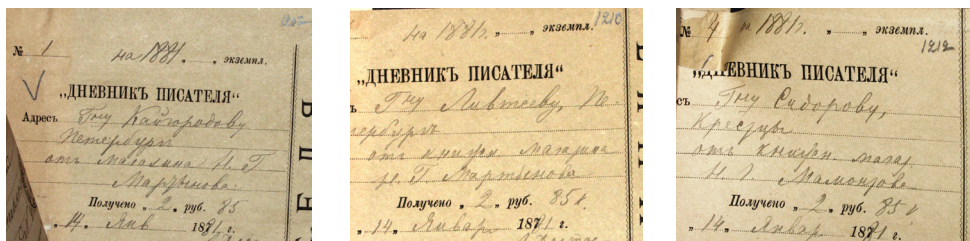 № 1 на 1881 „ „ экземпл.
„ДНЕВНИКЪ ПИСАТЕЛЯ“
Адресъ Гну Кайгородову
Петербургъ
отъ магазина Н. Г.
Мартынова.
Получено „ 2 „ руб. 85
„ 14 „ Янв 1881 г.
1210
на 1881г. „ „ экземпл.
„ДНЕВНИКЪ ПИСАТЕЛЯ“
ъ Гну Ливтееву, Пе-
тербургъ
отъ книжн магазина
Н. Г. Мартынова
Получено „ 2 „ руб. 85 к
„ 14 „ Январ 1881 г.
1212
№ 4 на 1881г. „ „ экземпл.
„ДНЕВНИКЪ ПИСАТЕЛЯ“
съ Гну Сидорову,
Крестцы
отъ книжн. магаз
Н. Г. Мамонтова
Получено „ 2 „ руб. 85 к
„ 14 „ Январ 1881 г.